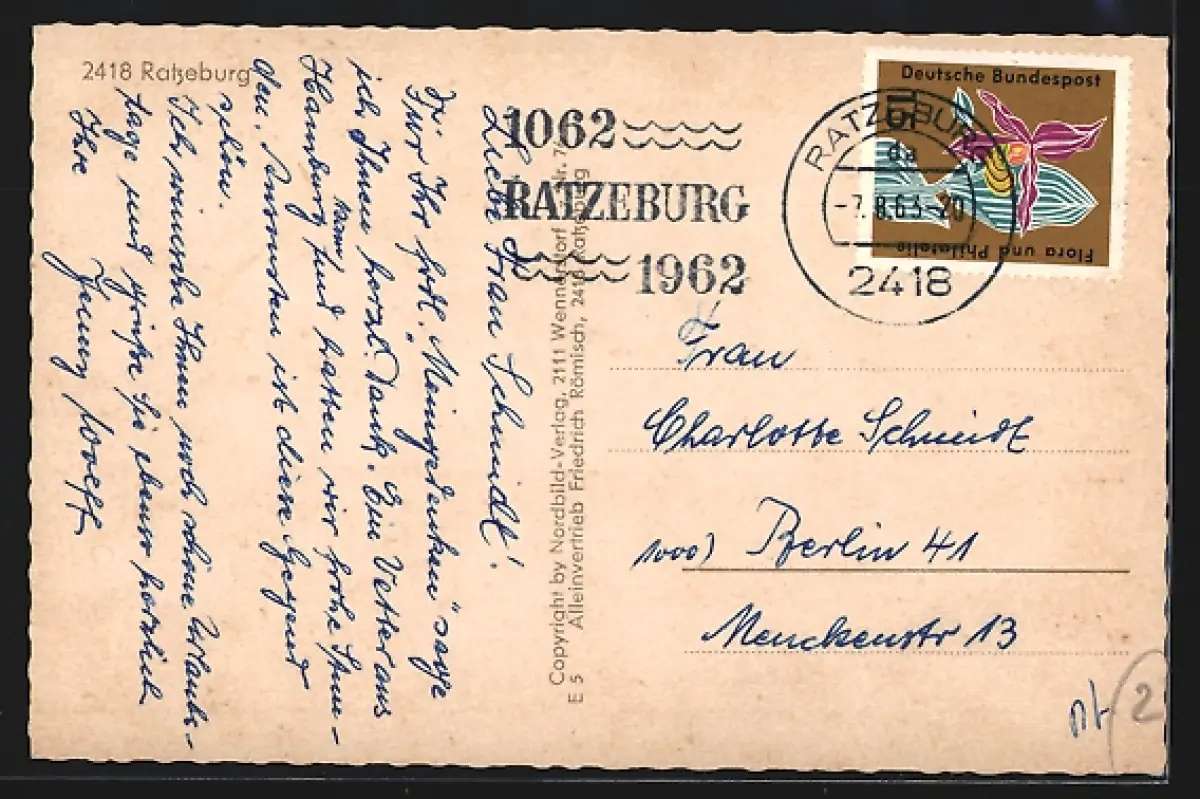 2418 Ratzeburg
Liebe Frau Schmidt!
Für Ihr frdl. "Meingedenken" sage
ich Ihnen herzl. Dank. Eine Vetter aus
Hamburg kam und hatten wir frohe Stun-
den. Ansonsten ist diese Gegend
schön.
Ich wünsche Ihnen noch schöne Urlaubs-
tage und grüße Sie ebenso herzlich
Ihre
Jenny Wolff
Copyright by Nordbild-Verlag, 2111 Wennerstorf Nr. 76
E 5 Alleinvertrieb Friedrich Römisch, 2418 Ratzeburg
1062
RATZEBURG
1962
Deutsche Bundespost
Flora und Philatelie
RATZEBURG
da
-7.8.63-20
2418
Frau
Charlotte Schmidt
1000) Berlin 41
Menckenstr 13
2